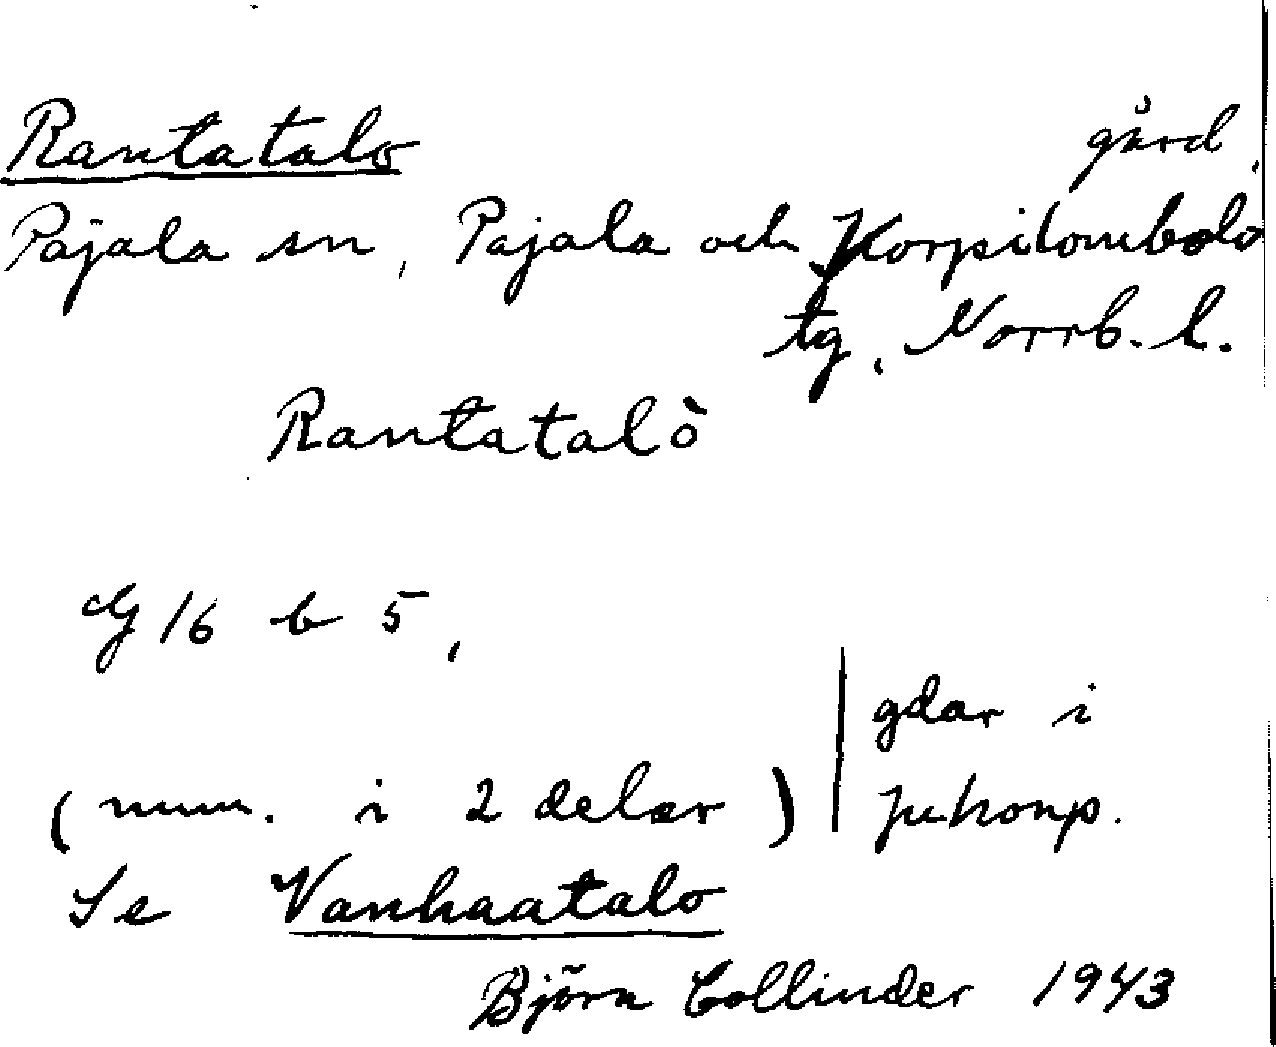 Rantatalo gård,
Pajala sn, Pajala och Korpilombolo
tg, Norrb. l.
Rantatalò
G 16 b 5,
gdar i
(num. i 2 delar) Juhonp.
Se Vanhaatalo
Björn Collinder 1943